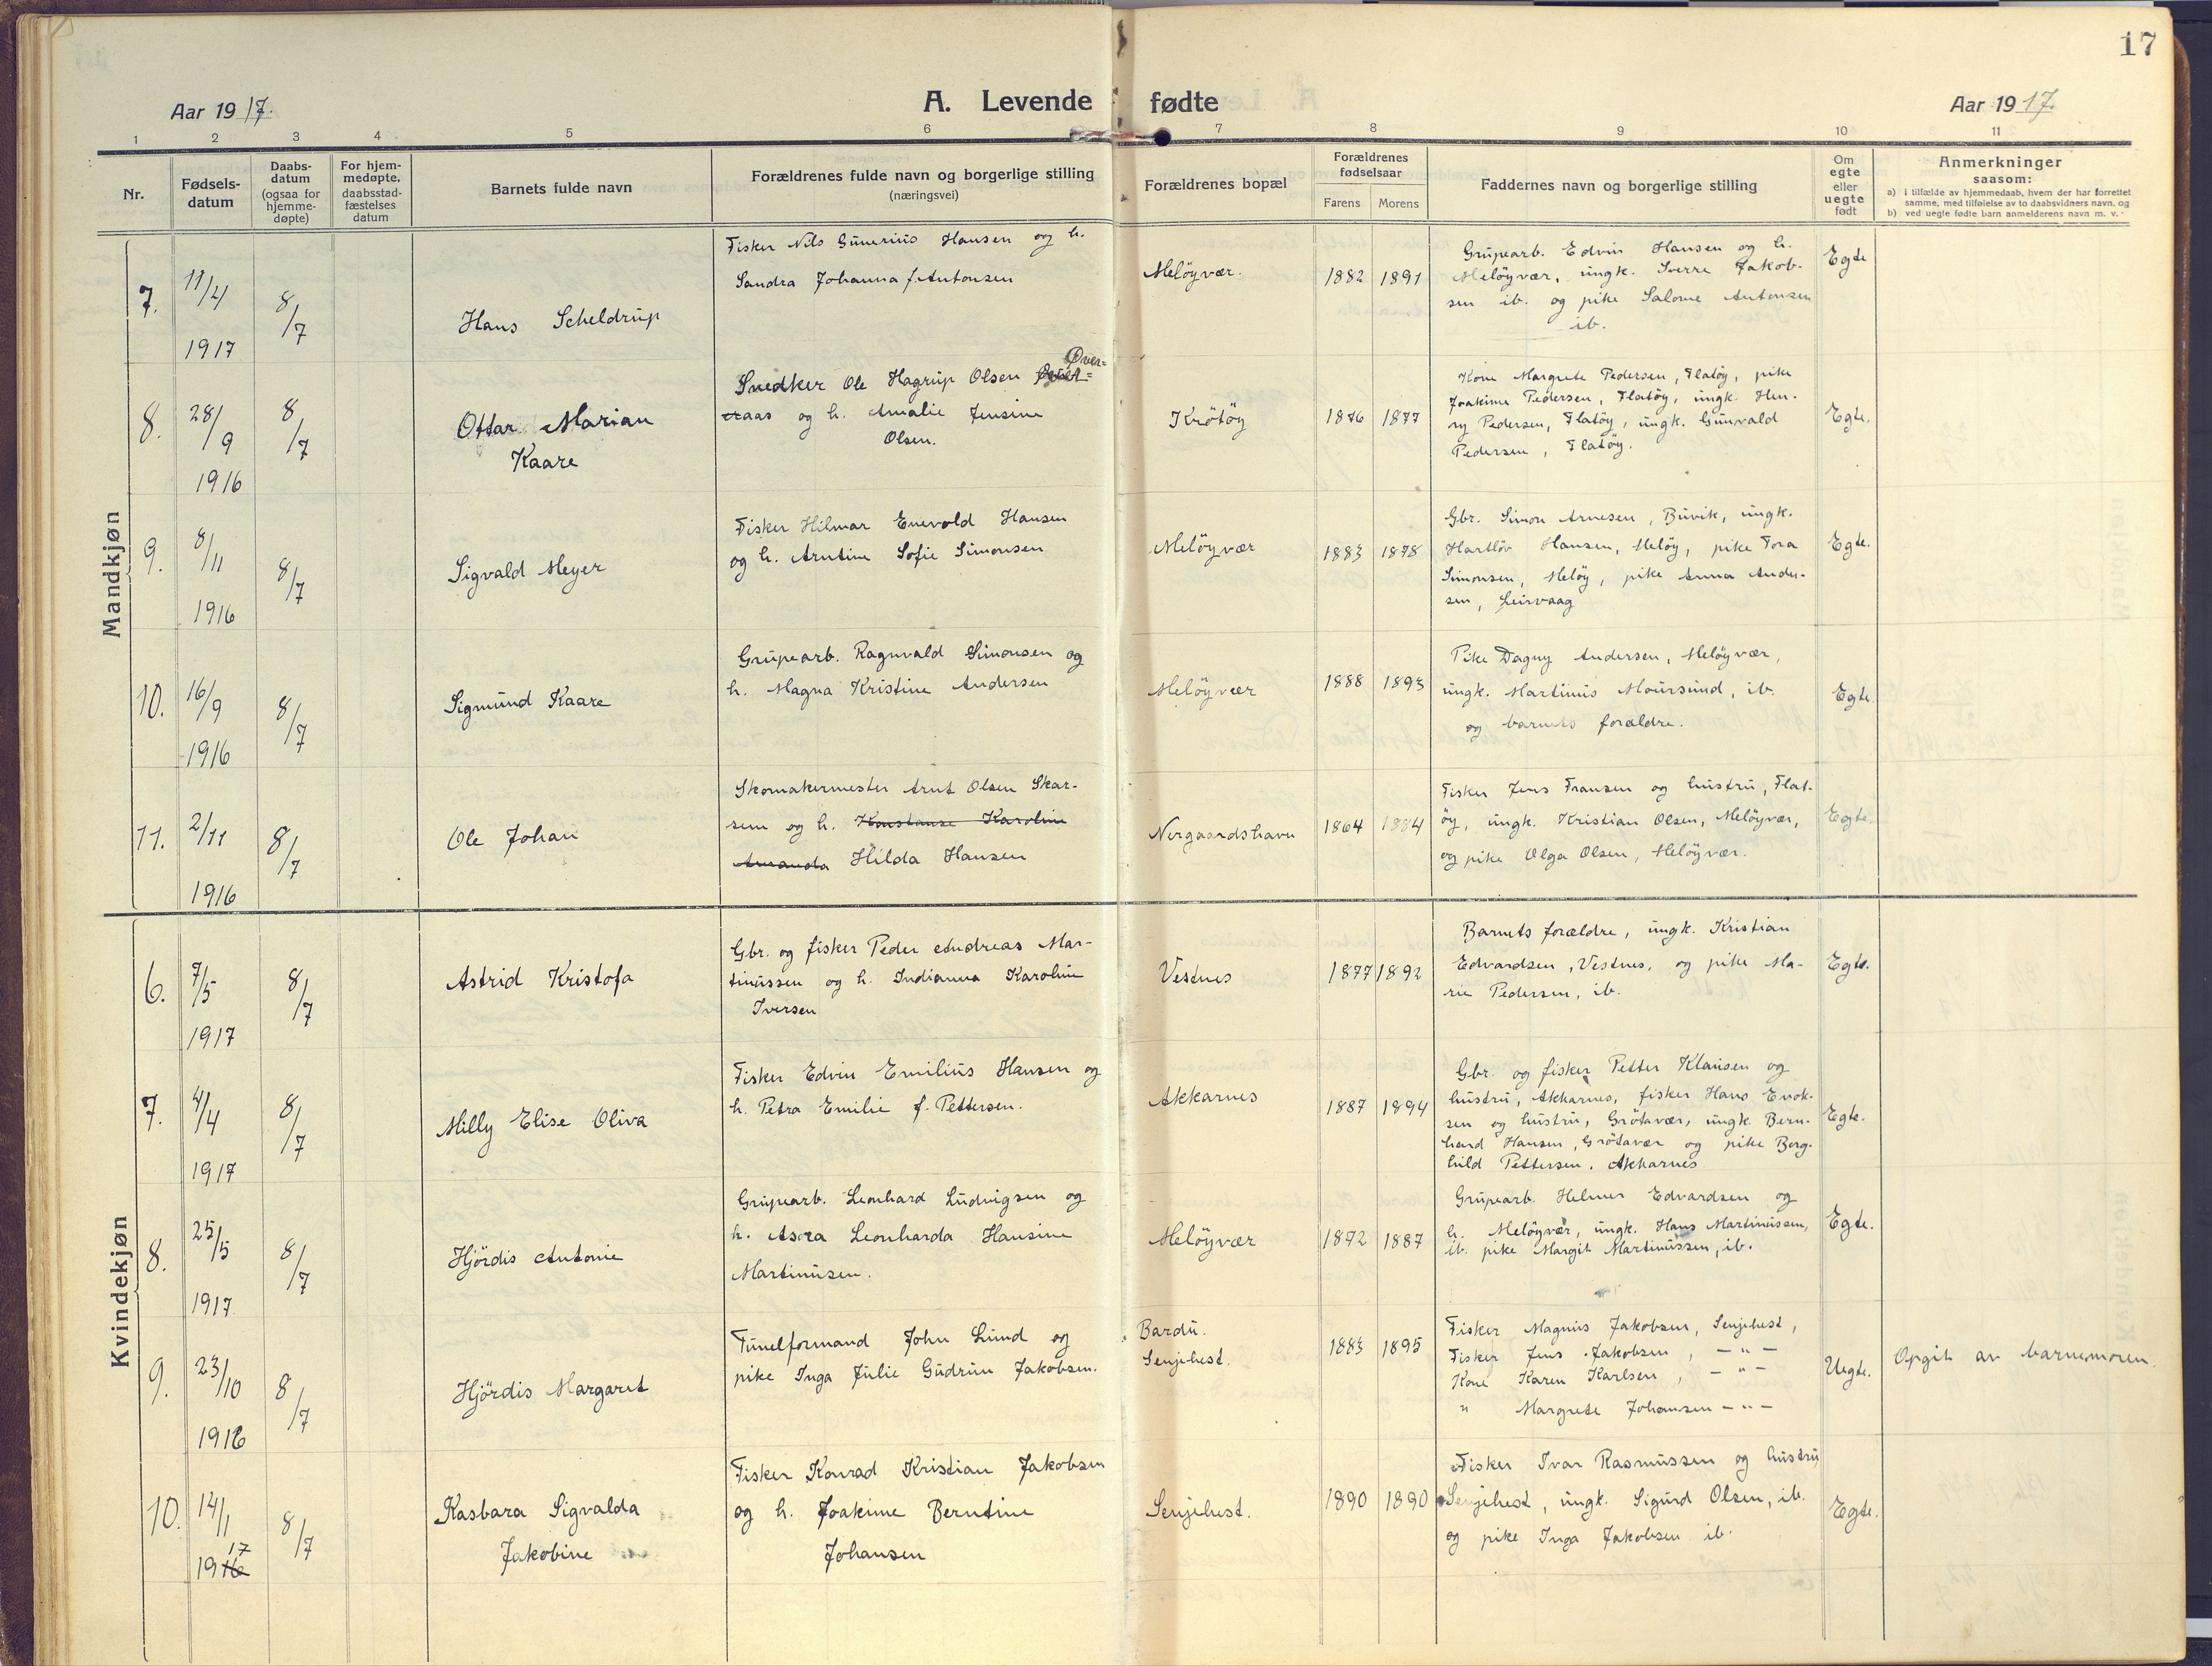 17
Aar 1917.
A. Levende fødte
Aar 1917.
1 2 3 4 5 6 7 8 9 10 11
Nr.
Fødsels-
datum
Daabs-
datum
(ogsaa for
hjemme-
døpte)
For hjem-
medøpte,
daabsstad-
fæstelses
datum
Barnets fulde navn
Forældrenes fulde navn og borgerlige stilling
(næringsvei)
Forældrenes bopæl
Forældrenes
fødselsaar
Farens Morens
Faddernes navn og borgerlige stilling
Om
egte
eller
uegte
født
Anmerkninger
saasom:
a) i tilfælde av hjemmedaab, hvem der har forrettet
samme, med tilføielse av to daabsvidners navn, og
b) ved uegte fødte barn anmelderens navn m. v.
Mandkjøn
7.
11/4
1917
8/7
Hans Scheldrup
Fisker Nils Gunerius Hansen og h.
Sandra Johanna f. Antonsen
Meløyvær.
1882 1891
Grupearb. Edvin Hansen og h.
Meløyvær, ungk. Sverre Jakob-
sen ib. og pike Salome Antonsen
ib.
Egte
8.
28/9
1916
8/7
Ottar Marian
Kaare
Snedker Ole Hagrup Olsen Øver=
raas og h. Amalie Jensine
Olsen.
Krøtøy
1876 1877
Kone Margrete Pedersen, Flatøy, pike
Joakime Pedersen, Flatøy, ungk. Hen-
ry Pedersen, Flatøy, ungk. Gunvald
Pedersen, Flatøy.
Egte.
9.
8/11
1916
8/7
Sigvald Meyer
Fisker Hilmar Enevold Hansen
og h. Arntine Sofie Simonsen
Meløyvær
1883 1878
Gbr. Simon Arnesen, Buvik, ungk.
Hartløv Hansen, Meløy, pike Tora
Simonsen, Meløy, pike Anna Ander-
sen, Leirvaag
Egte.
10.
16/9
1916
8/7
Sigmund Kaare
Grupearb. Ragnvald Simonsen og
h. Magna Kristine Andersen
Meløyvær
1888 1893
Pike Dagny Andersen, Meløyvær,
ungk. Martinus Moursund, ib.
og barnets forældre.
Egte.
11.
2/11
1916
8/7
Ole Johan
Skomakermester Arnt Olsen Skar-
sem og h. Konstanse Karoline
Amanda Hilda Hansen
Nergaardshavn
1864 1884
Fisker Jens Fransen og hustru, Flat-
øy, ungk. Kristian Olsen, Meløyvær,
og pike Olga Olsen, Meløyvær.
Egte.
Kvindekjøn
6.
7/5
1917
8/7
Astrid Kristofa
Gbr. og fisker Peder Andreas Mar-
tinussen og h. Indianna Karoline
Iversen
Vestnes
1877 1892
Barnets forældre, ungk. Kristian
Edvardsen, Vestnes, og pike Ma-
rie Pedersen, ib.
Egte.
7.
4/4
1917
8/7
Milly Elise Oliva
Fisker Edvin Emilius Hansen og
h. Petra Emilie f. Pettersen.
Akkarnes
1887 1894
Gbr. og fisker Petter Klausen og
hustru, Akkarnes, fisker Hans Enok-
sen og hustru, Grøtavær, ungk. Bern-
hard Hansen, Grøtavær og pike Borg-
hild Pettersen. Akkarnes
Egte.
8.
25/5
1917
8/7
Hjørdis Antonie
Grupearb. Leonhard Ludvigsen og
h. Asora Leonharda Hansine
Martinusen.
Meløyvær
1872 1887
Grupearb. Helmer Edvardsen og
h. Meløyvær, ungk. Hans Martinussen,
ib. pike Margit Martinussen, ib.
Egte.
9.
23/10
1916
8/7
Hjørdis Margaret
Tunelformand John Lund og
pike Inga Julie Gudrun Jakobsen.
Bardu.
Senjehest.
1883 1895
Fisker Magnus Jakobsen, Senjehest,
Fisker Jens Jakobsen, — " —
Kone Karen Karlsen, — " —
" Margrete Johansen — " —
Uegte.
Opgit av barnemoren.
10.
14/1
17
1916
8/7
Kasbara Sigvalda
Jakobine
Fisker Konrad Kristian Jakobsen
og h. Joakime Berntine
Johansen
Senjehest.
1890 1890
Fisker Ivar Rasmussen og hustru
Senjehest, ungk. Sigurd Olsen, ib.
og pike Inga Jakobsen ib.
Egte.